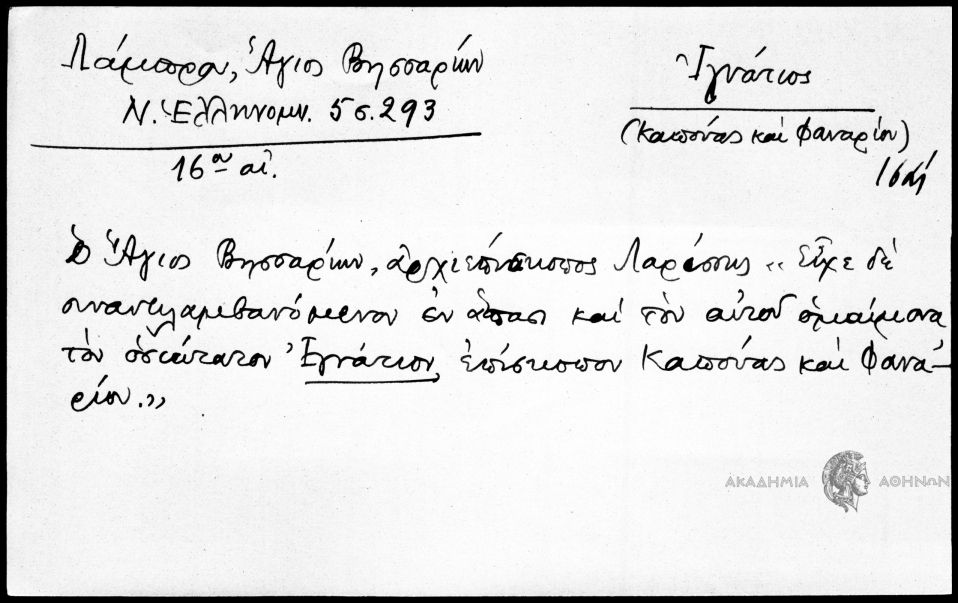 Λάμπρου, Ἅγιος Βησσαρίων
Ν. Ἑλληνομν. 5 σ. 293
16ου αἰ.
Ἰγνάτιος
(Καπούας καὶ Φαναρίου)
16αἰ
Ὁ Ἅγιος Βησσαρίων, ἀρχιεπίσκοπος Λαρίσσης „ Εἶχε δὲ
συναντιλαμβανόμενον ἐν ἅπασι καὶ τὸν αὐτοῦ ὁμαίμονα
τὸν ὁσιώτατον Ἰγνάτιον, ἐπίσκοπον Καπούας καὶ Φανα-
ρίου.„
ΑΚΑΔΗΜΙΑ ΑΘΗΝΩΝ